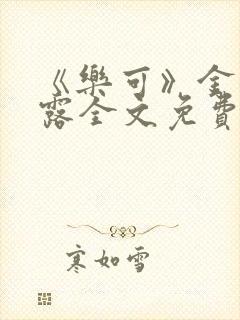 《樂可》金
露全文免費
寒如雪